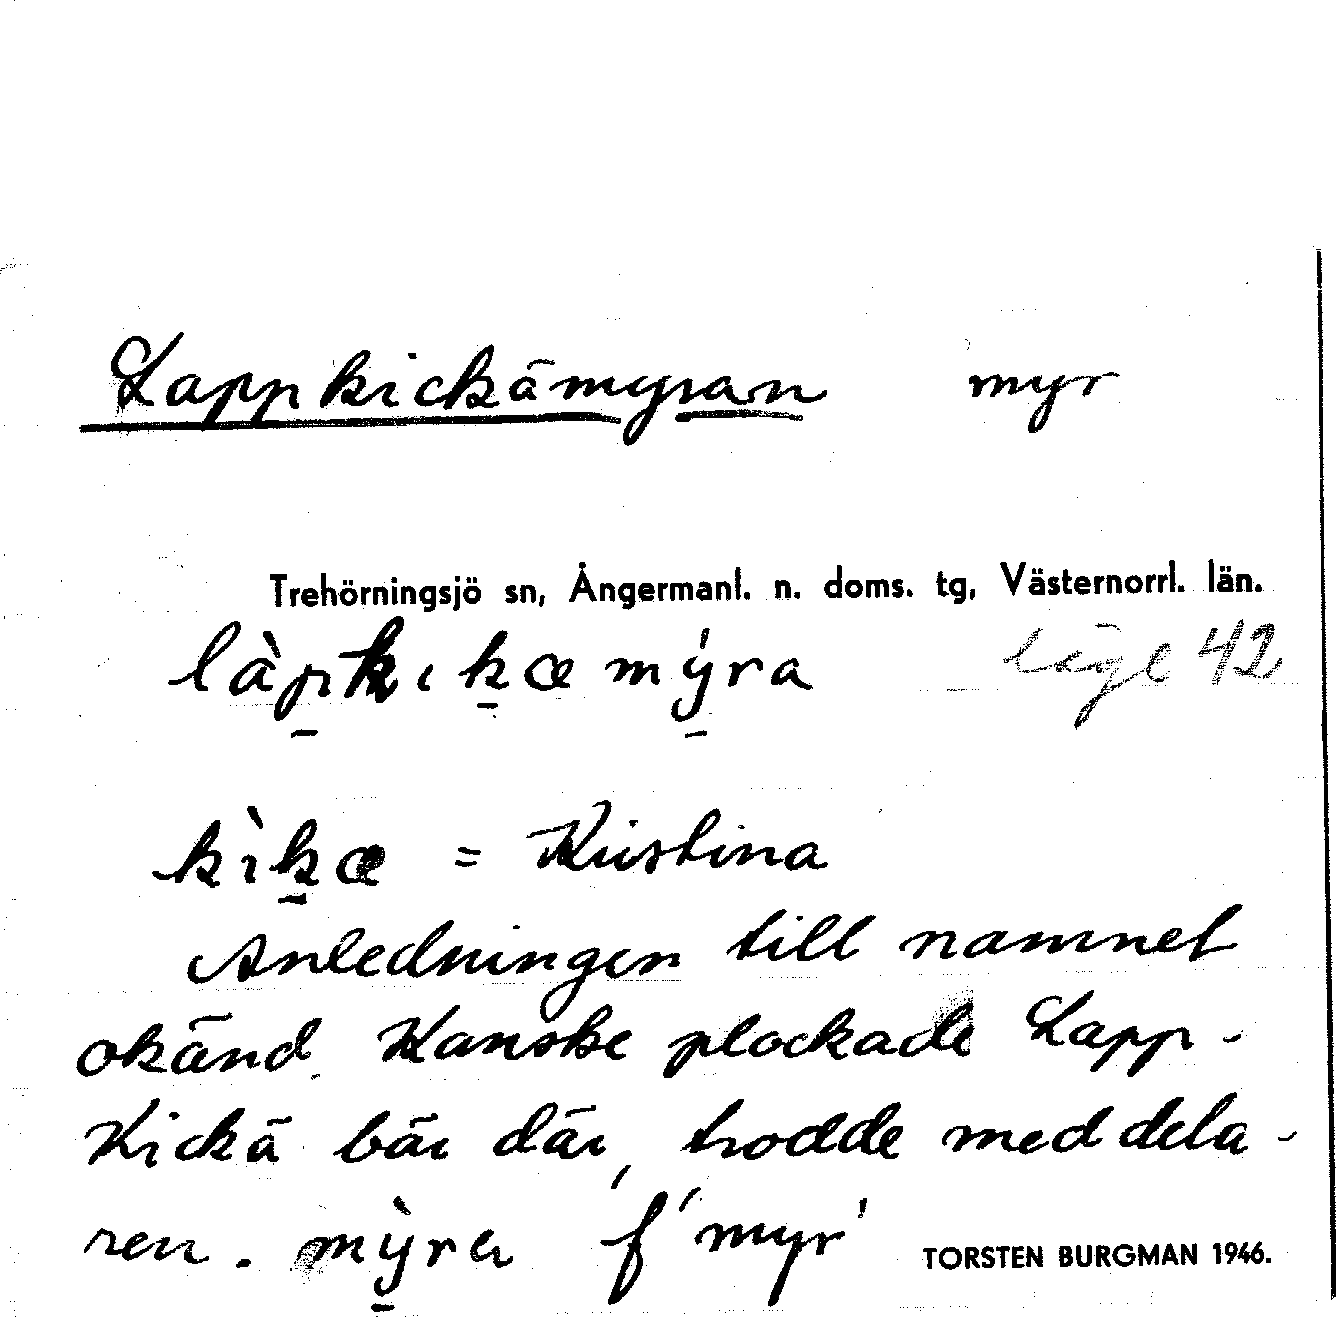 Lappkickämyran myr
Trehörningsjö sn, Ångermanl. n. doms. tg, Västernorrl. län.
làp̱kɩḵæmýra lägl 42
kı̀ḵæ = Kristina
Anledningen till namnet
okänd. Kanske plockade Lapp-
Kickä bär där, trodde meddela-
ren. mỳ̱ra f 'myr'
TORSTEN BURGMAN 1946.